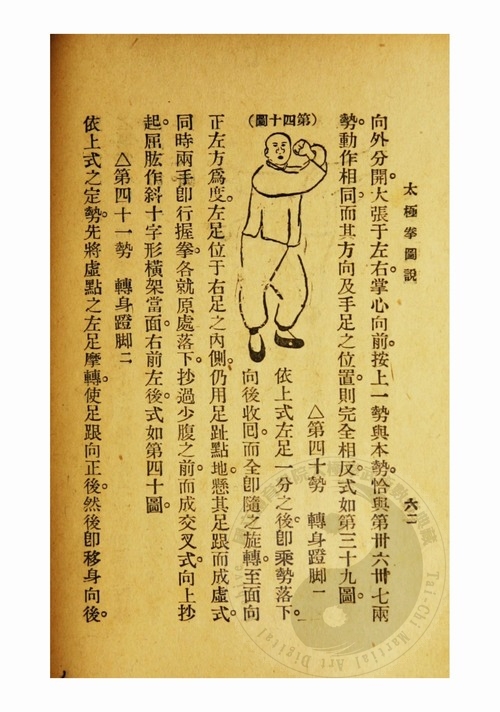 太極拳圖說
六二
向外分開大張于左右。掌心向前。按上一勢與本勢恰與第卅六卅七兩
勢動作相同。而其方向及手足之位置。則完全相反。式如第三十九圖。
△第四十勢 轉身蹬脚一
依上式左足一分之後。卽乘勢落下。
向後收囘。而全卽隨之旋轉。至面向
(第四十圖)
正左方爲度。左足位于右足之內側。仍用足趾點地。懸其足跟而成虛式。
同時兩手卽行握拳。各就原處落下。抄過少腹之前。而成交叉式。向上抄
起。屈肱作斜十字形橫架當面。右前左後。式如第四十圖。
△第四十一勢 轉身蹬脚二
依上式之定勢。先將虛點之左足摩轉。使足跟向正後。然後卽移身向後。
Tai-Chi Martial Art Digital